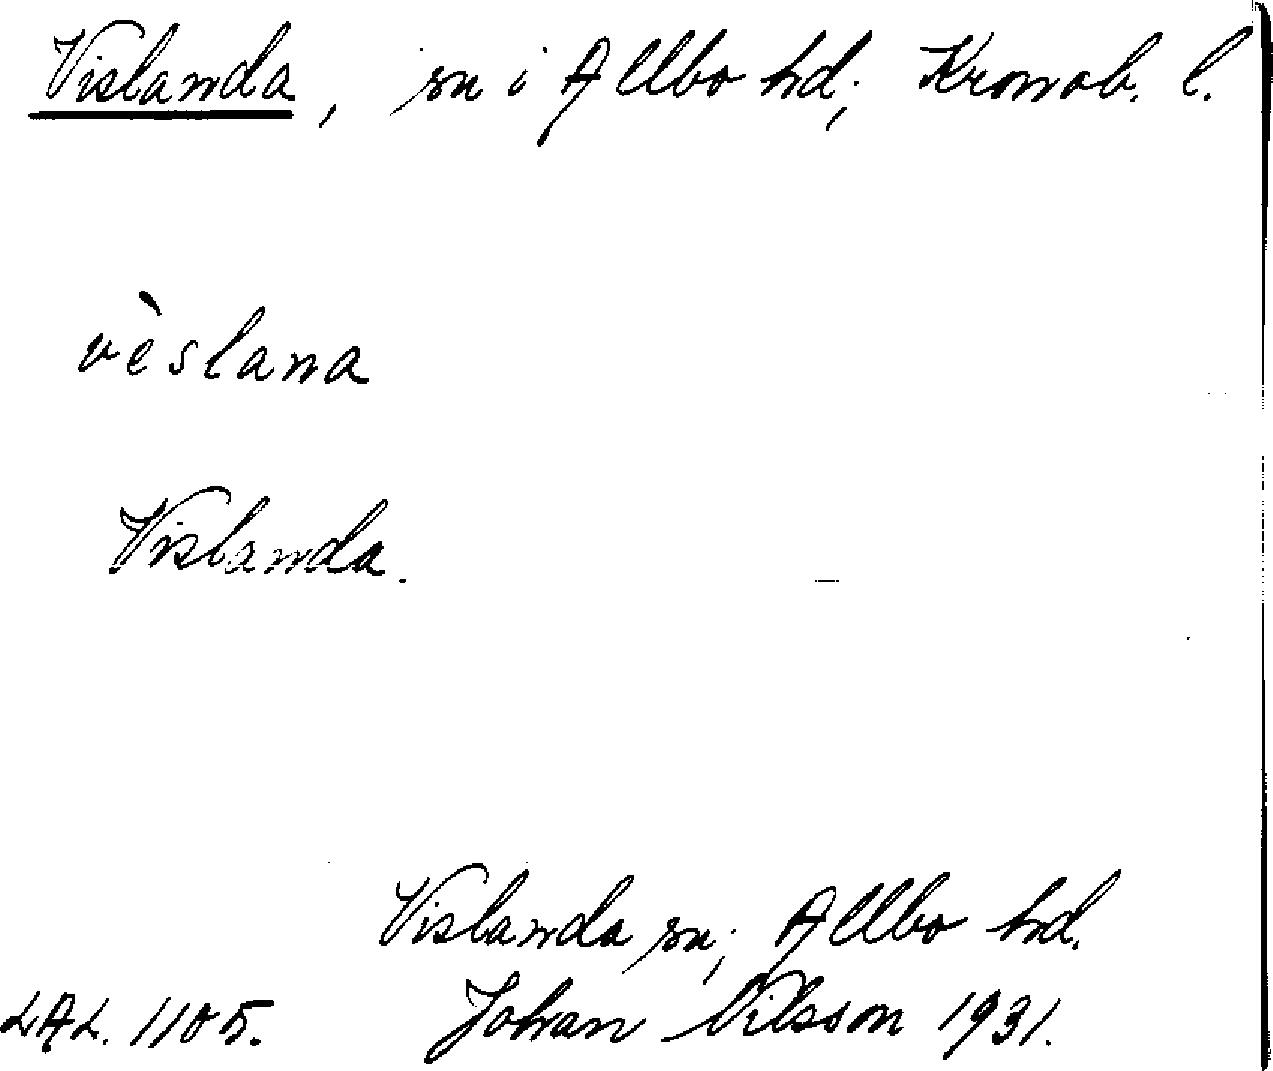 Vislanda, sn i Allbo hd, Kronob. l.
vèslana
Vislanda.
Vislanda sn, Allbo hd.
LAL. 1185. Johan Nilsson 1931.